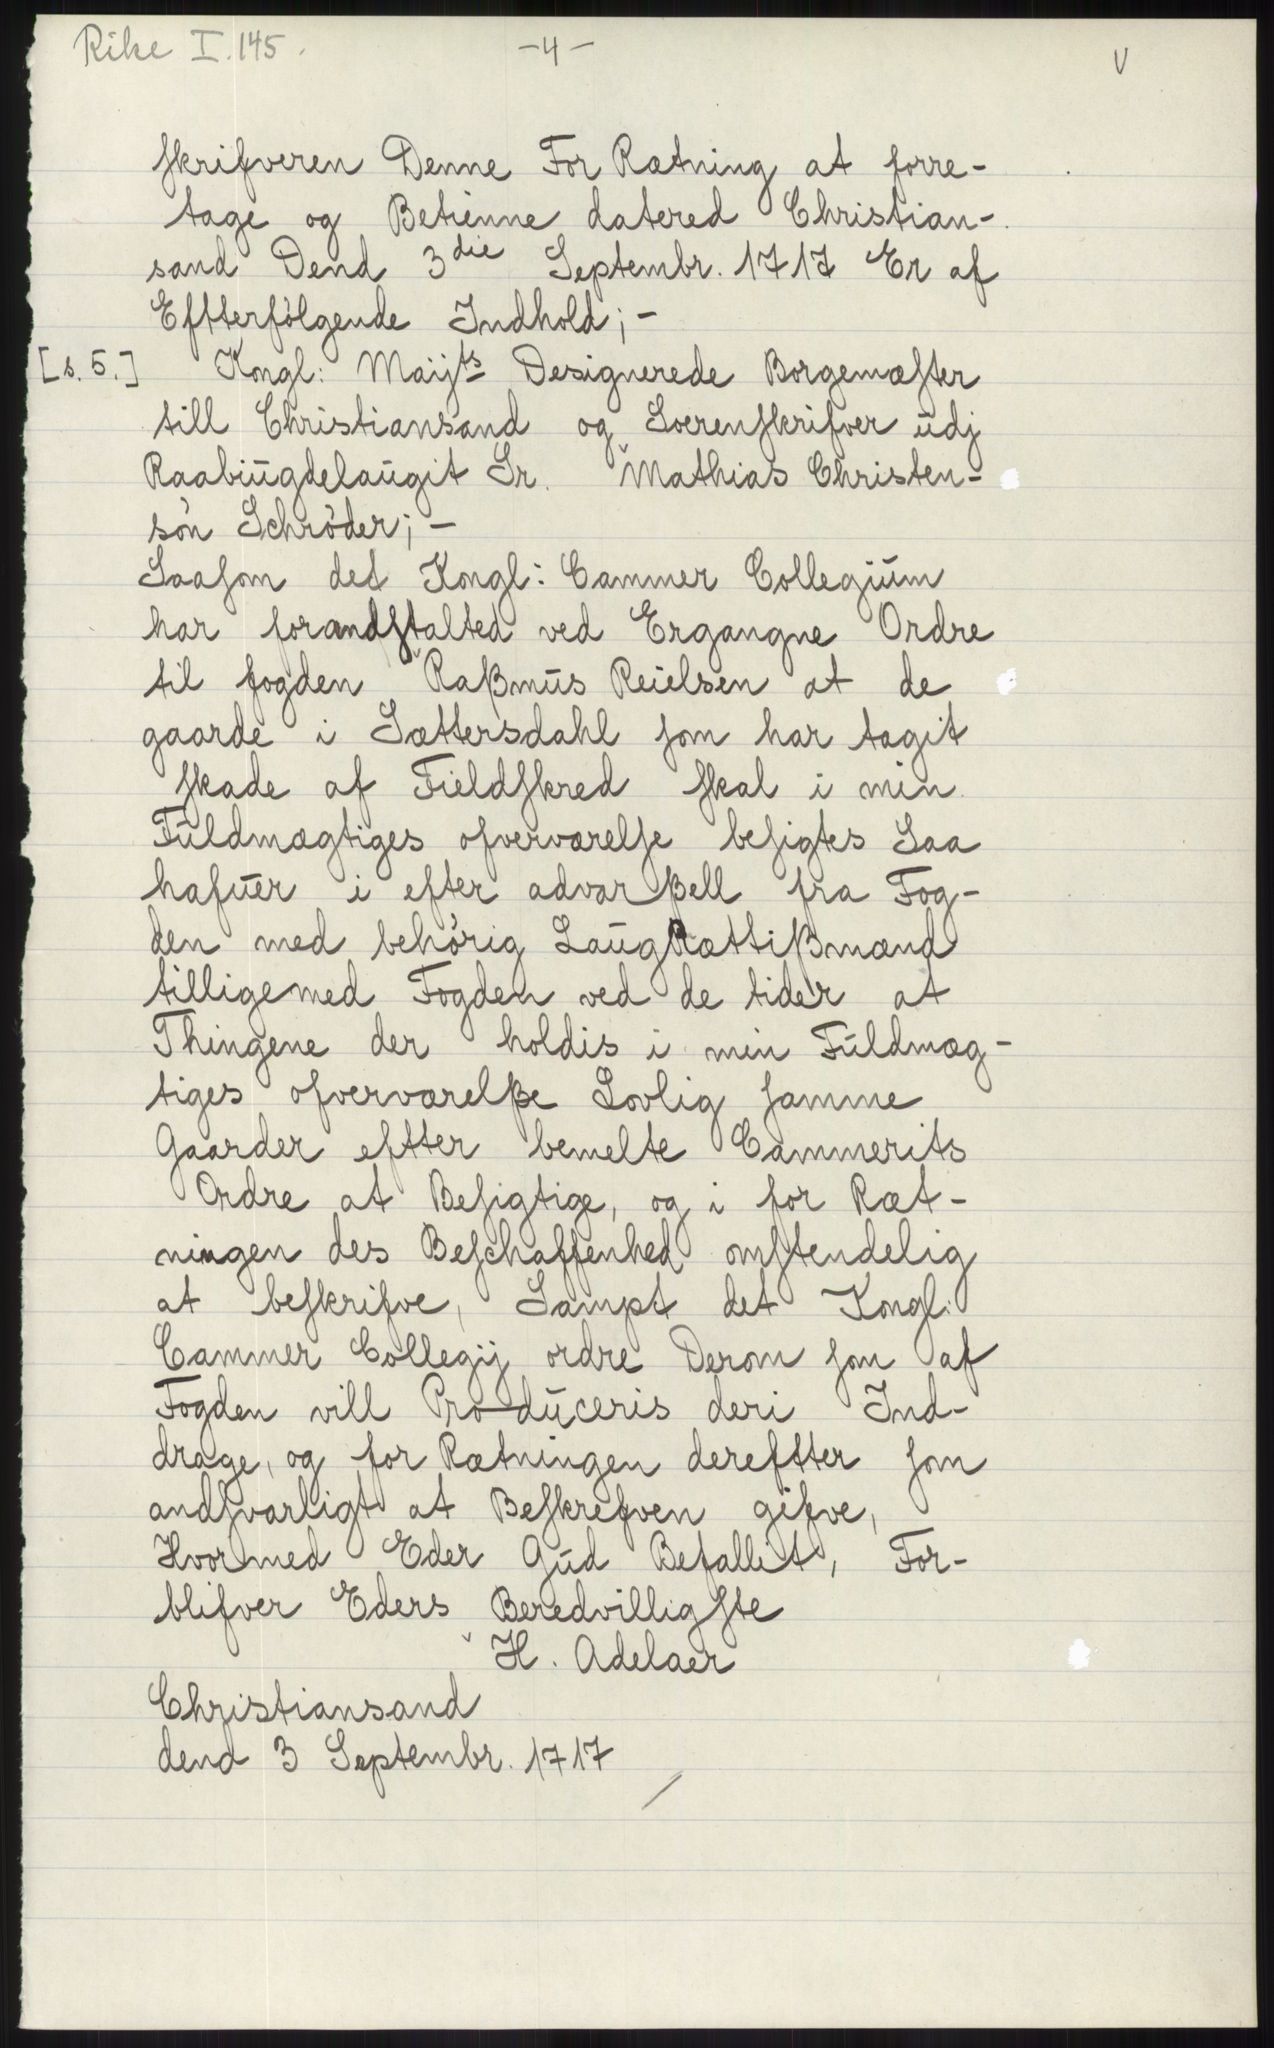 Rike I. 145.
-4-
V
skrifveren Denne For Rætning at forre-
tage og Betienne datered Christian-
sand Dend 3die Septembr. 1717 Er af
Effterfölgende Indhold; -
[s. 5.] Kongl: Maijts Designerede Borgemæster
till Christiansand og Sverenskrifver udj
Raabiugdelaugit Sr. Mathias Christen-
sön Schröder; -
Saasom det Kongl: Cammer Collegium
har forandstalted ved Ergangne Ordre
til fogden Raßmus Reielsen at de
gaarde i Sættersdahl som har tagit
skade af Fieldskred skal i min
Fuldmægtiges ofverværelse besigtes Saa
hafuer i efter advarßell fra Fog-
den med behörig LaugRættißmænd
tilligemed Fogden ved de tider at
Thingene der holdis i min Fuldmæg-
tiges ofverværelße Lovlig samme
Gaarder eftter bemelte Cammerits
Ordre at Besigtige, og i for Ræt-
ningen des Beschaffenhed omstendelig
at beskrifve, Sampt det Kongl:
Cammer Collegij ordre Derom som af
Fogden vill Produceris deri Ind-
drage, og for Rætningen dereftter som
andsvarligt at Beskrefven gifve,
Hvormed Eder Gud Befallet, For-
blifver Eders Beredvilligste
H. Adelaer
Christiansand
dend 3 Septembr. 1717